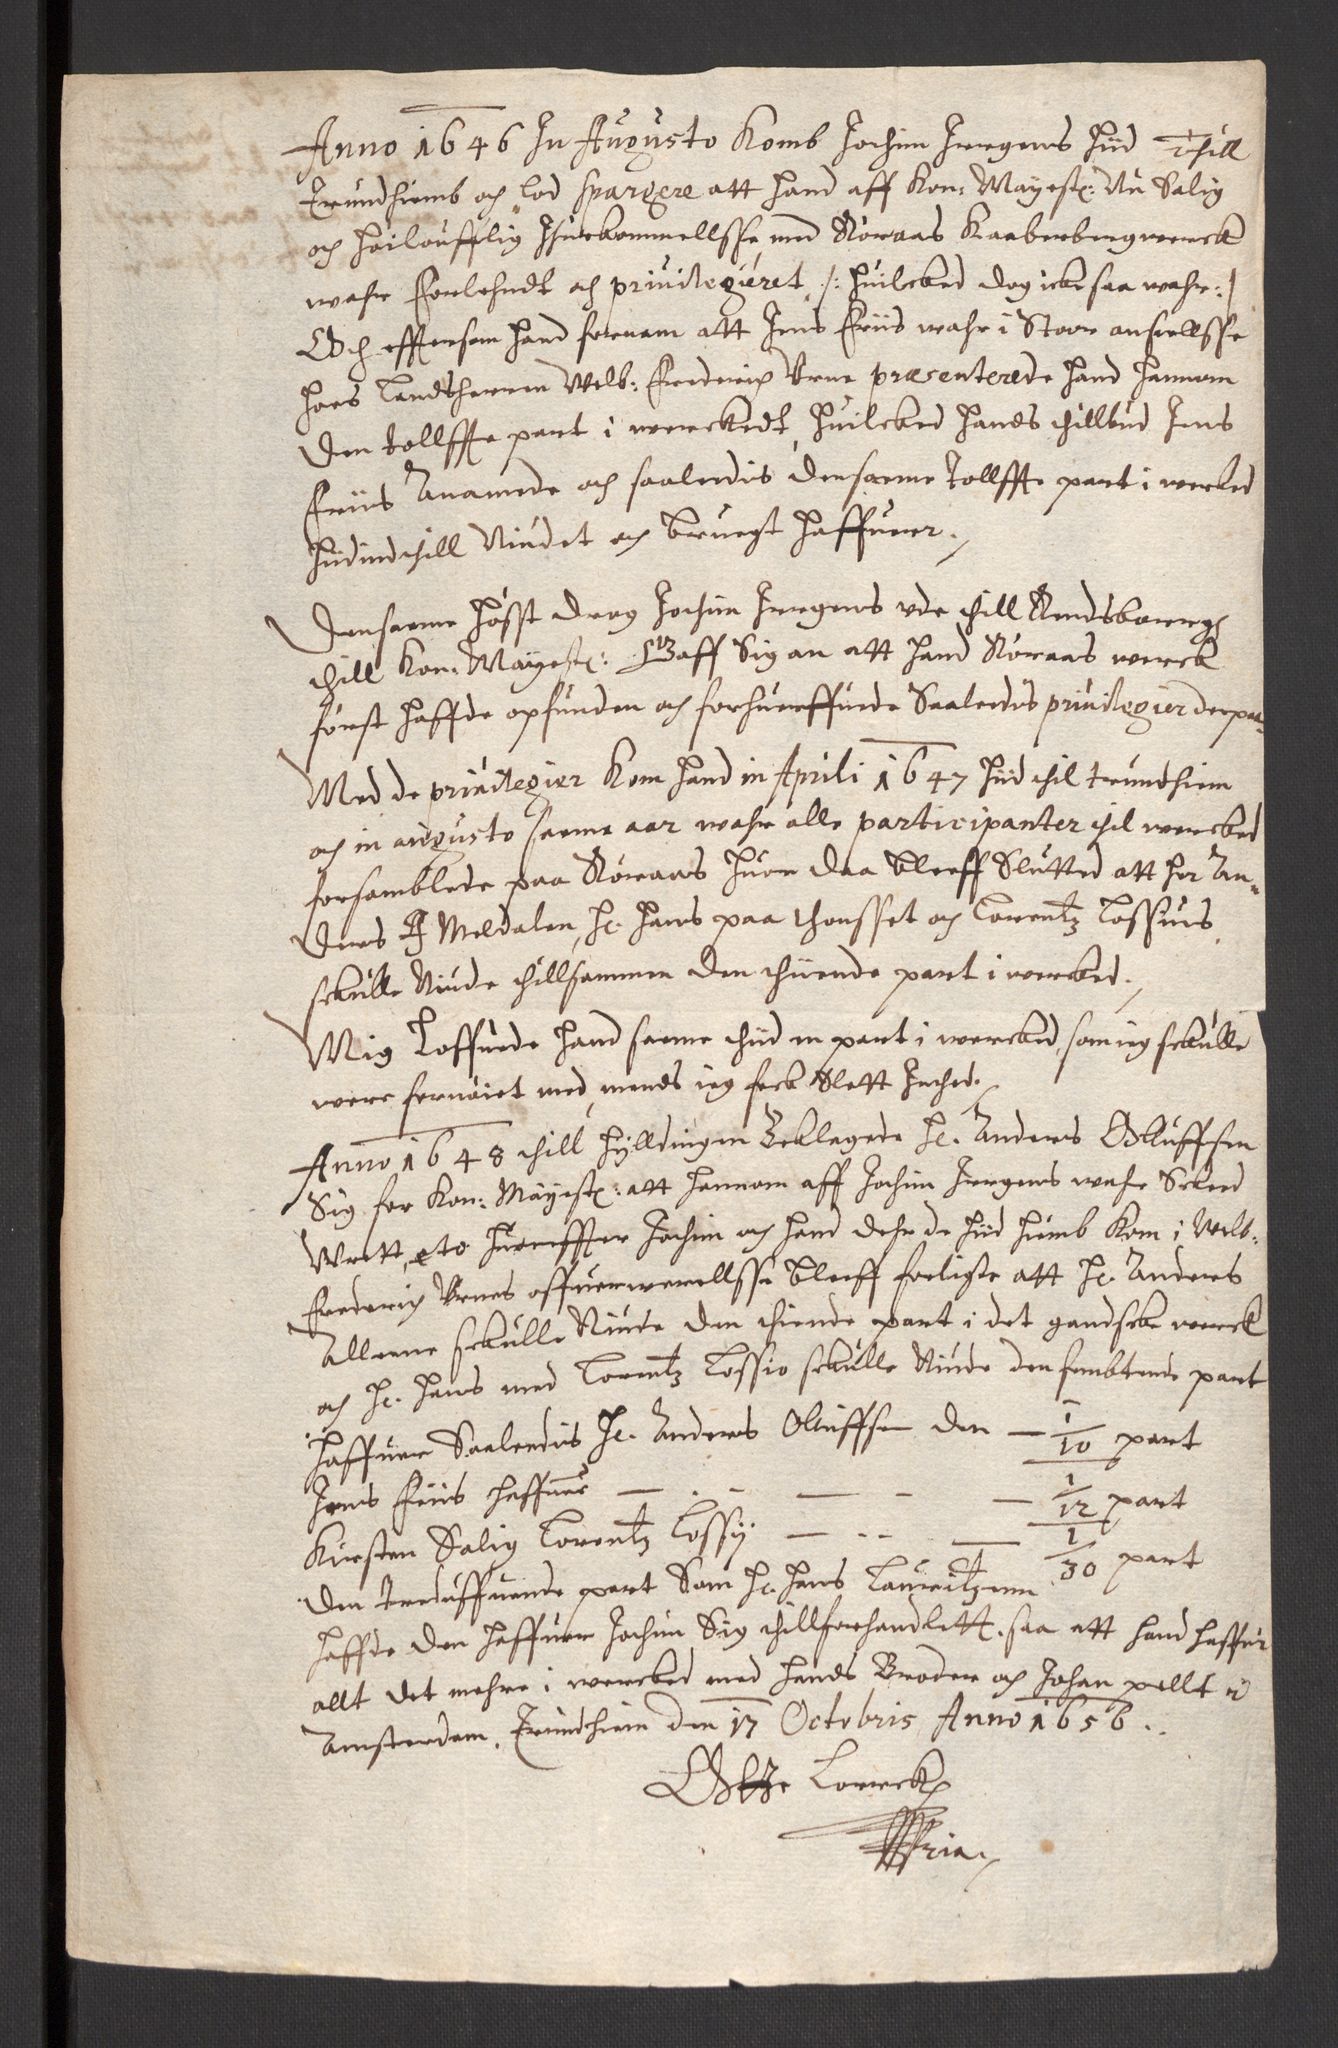 Anno 1646 In Augusto Komb Jochim Irgens hiid thill
Trundhiemb och lod spargere att hand aff Kon: Mayest: Nu Salig
och høiloufflig Ihukommellsse med Røraas Kaaberbergwerck
wahr forlehndt och privilegieret /: huilcked dog icke saa wahr :/
Och effttersom hand fornam att Jens Friis wahr i Stoor ansiellsse
hoes Landsherren Welb: Frederich Vrne præsenterede hand hannom
den tollffte part i werckedt, huilcked hands thillbud Jens
Friis Anamede och saaledis den samme Tollffte part i wercked
hiidindthill Niudet och bruegt haffuer.
Den samme høsst drog Jochim Irgens vde thill Rendsborrig
thill Kon: Mayest: Gaff Sig an att hand Røraas werck
først haffde opfunden och forhuerffuede Saaledis privilegier der paa
Med de privilegier Kom hand in Aprili 1647 hiid thil Trundhiem
och in augusto samme aar wahr alle participanter thil wercked
forsamblede paa Røraas huor daa bleff Slutted att her An-
ders J Meldalen, Hr. Hans paa thonsset och Lorentz Lossius
skulle Niude thillsammen den thiende part i wercked.
Mig Loffuede hand samme thiid en part i wercked, som ieg skulle
were fornøiet med, mends ieg feck Slett Inthed.
Anno 1648 thill hylldingen Beklagede Hr. Anders Olluffsen
Sig for Kon: Mayest: att hannom aff Jochim Irgens wahr Skeed
Wrett, etc huoreffter Jochim och hand dehr de hiid hiemb Kom i Welb:
Frederich Vrnes offuerwerellsse bleff forligte att Hr. Anders
Allene skulle Niude den thiende part i det gandske werck
och Hr. Hans med Lorentz Lossio skulle Niude den fembtende part
haffuer Saaledis Hr. Anders Olluffsen den — 1/10 part
Jens Friis haffuer — . - — - — 1/12 part
Kirsten Salig Lorentz Lossij — . . — 1/30 part
Den tredeffuende part Som Hr. Hans Lauritzenn
haffde den haffuer Jochim Sig thillforhandlett. saa att hand haffuer
allt det mehre i wercked med hands Broder och Johan pellt i
Amsterdam. Trundhiem den 17 Octobris Anno 1656.
Otte Lorrck